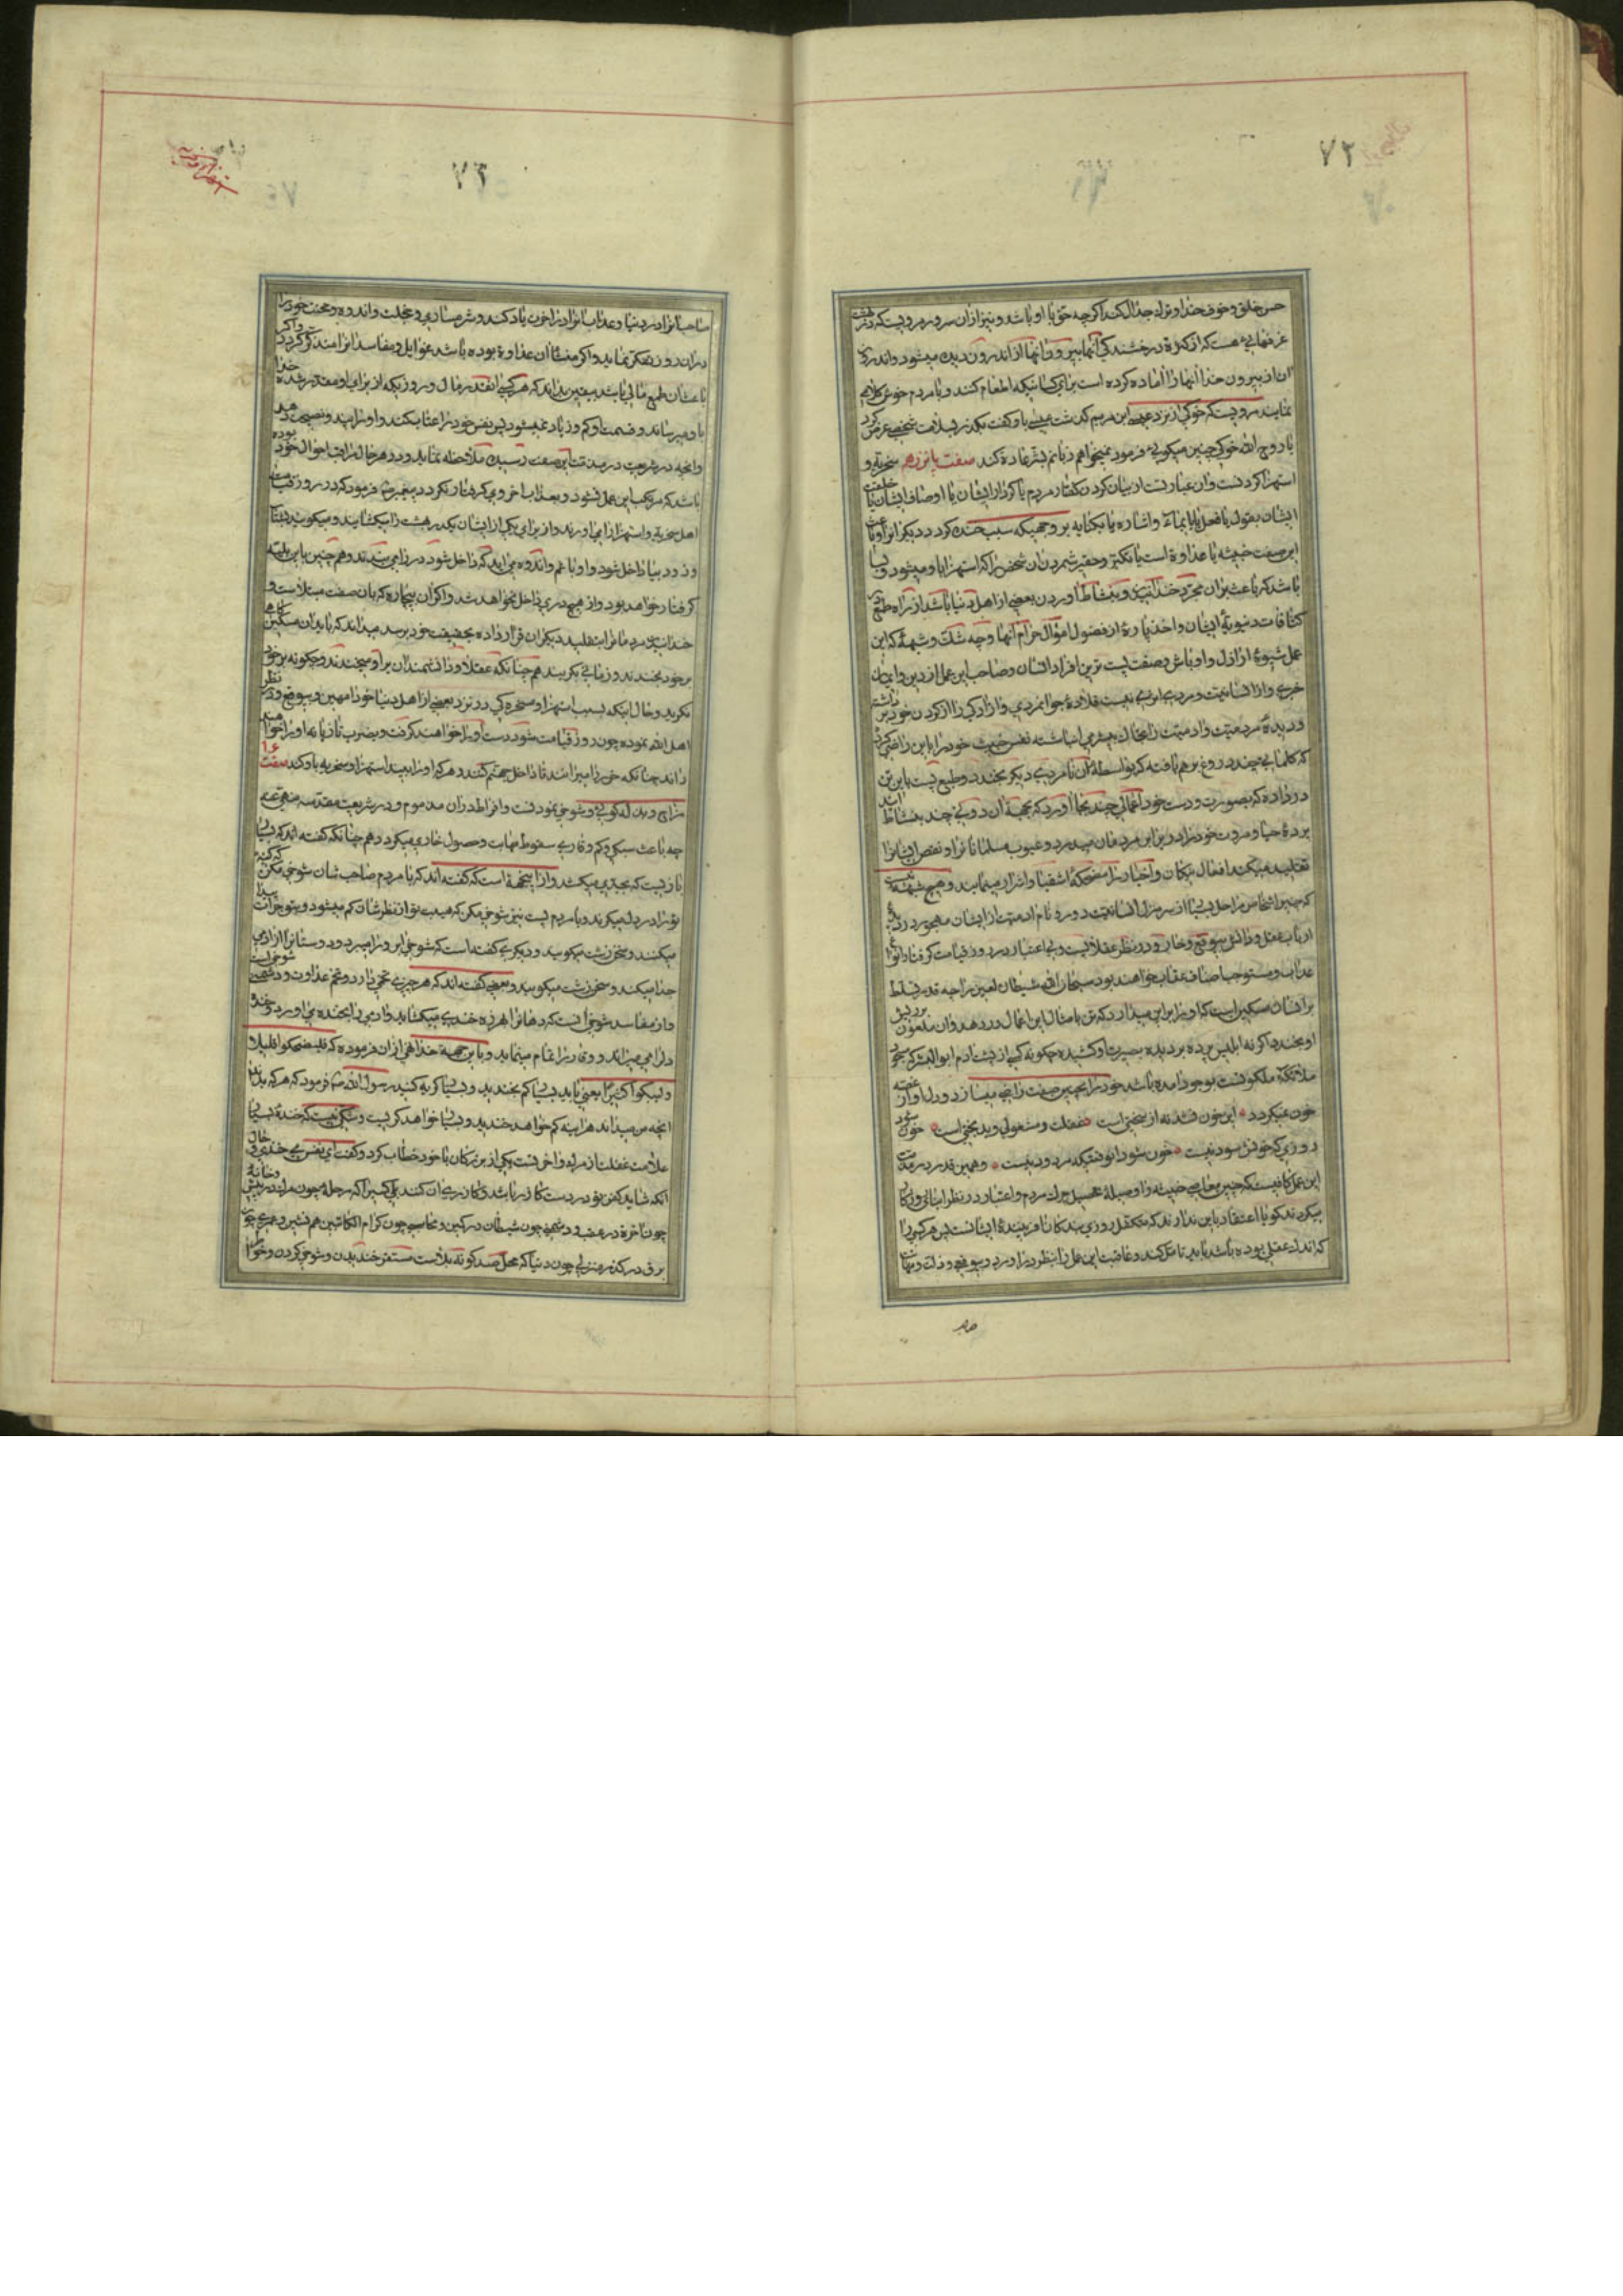 ٧٢
حسن خلق و خوف خدا و ترك جدال كند اكرچه حق با او باشد و نیز از آن سرور مرویست كه در بهشت
غرفهایی هست كه از كثرة درخشندكی آنها بیرون آنها از اندرون دیده میشود و اندرون
آن از بیرون خدا آنها را آماده كرده است برای كسانیكه اطعام كنند و با مردم خوش كلامی
نمایند مرویست كه خوكی از نزد عیسی ابن مریم كذشت عیسی با و كفت بكذر بسلامت شخصی عرض كرد
یا روح الله خوك چنین میكویی فرمود نمیخواهم زبانم بشر عادة كند صفت پانزدهم سخریه و
استهزا كردنست و آن عبارتست از بیان كردن كفتار مردم یا كردار ایشان یا اوصاف ایشان یا خلقت
ایشان بقول یا فعل یا بایماء و اشاره یا بكنایه بر وجهیكه سبب خنده كردد دیكر آنرا و باعث
این صفت خبیثه یا عداوة است یا تكبر و حقیر شمردن آن شخص را كه استهزا باو میشود و بسا
باشد كه باعث بر آن مجرد خندانیدن و بنشاط آوردن بعضی از اهل دنیا باشد از راه طمع در
كثافات دنیویهٔ ایشان و اخذ پارهٔ از فضول اموال حرام آنها و چه شك و شبههٔ كه این
عمل شیوهٔ اراذل و اوباش و صفت پست ترین افراد انسان و صاحب این عمل از دین و ایمان
خبری و از انسانیت و مردمی اثری نیست قلادهٔ جوانمردی و آزادكی را از كردن خود برداشته
و دیدهٔ مردمیت و آدمیت را بخاك بیشرمی انباشته نفس خبیث خود را باین راضی كرده
كه كلماتی چند دروغ بر هم بافته كه بواسطهٔ آن نامردی دیكر بخندد و طبع پست باین تن
در داده كه بصورت و دست خود اعمالی چند بجا آورد كه بجهة آن دونی چند بنشاط آیند
پردهٔ حیا و مروت خود را در برابر مردمان میدرد و عیوب مسلمانانرا و نقص ایشانرا
تقلید میكند افعال نیكان و اخیار را مضحكهٔ اشقیا و اشرار مینمایند و هیچ شبهه نیست
كه چنین اشخاص مراحل بسیار از سرمنزل انسانیت دور و نام آدمیت از ایشان مهجور در نزد
ارباب عقل و دانش بیوقع و خار و در نظر عقلا پست و بی اعتبار در روز قیامت كرفتار انواع
عذاب و مستوجب اصناف عقاب خواهند بود سبحان الله شیطان لعین را چه قدر تسلط
بر انسان مسكین است كه او را بر این میدارد كه تن بامثال این اعمال در دهد و آن ملعون بر ریش
او بخندد و اكر نه ابلیس پرده بر دیدهٔ بصیرت او كشیده چكونه كسی از پشت آدم ابوالبشر كه مسجود
ملائكهٔ ملكوتست بوجود آمده باشد خود را بچنین صفت راضی میسازد و دل او از غصه
خون نمیكردد این خون فشدنه از سختی است غفلت و مشغولی و بدبختی است خون شود
روزی كه خونش سود نیست خون شود آنوقتیكه مردود نیست و همین قدر در مذمت
این عمل كافیست كه چنین معاصی خبیثه را وسیلهٔ تحصیل چرك مردم و اعتبار در نظر ابنای روزكار
میكردند كویا اعتقاد باین ندارند كه متكفل روزی بندكان آفرینندهٔ ایشانست پس هر كسی را
كه اندك عقلی بوده باشد باید تامل كند و عاقبت این عمل را بنظر در آورد و بیوقعی و ذلت و مهانت
٧٣
صاحب آنرا در دنیا و عذاب آنرا در آخرت یاد كند و شرمساری و خجلت و اندوه و محنت خود را
در آن روز تفكر نماید و اكر منشأ آن عداوة بوده باشد غوایل و مفاسد آنرا متذكر كردد و اكر
باعث آن طمع مالی باشد یقین بداند كه هر كسی را آنقدر مال و روزیكه از برای او مقدر شده خدا
باو میرساند و قسمت او كم و زیاد نمیشود پس نفس خود را عتاب كند و او را پند و نصیحت دهد
و آنچه در شریعت در مذمت این صفت رسیده ملاحظه نماید و در هر حال مراقب احوال خود بوده
باشد كه مرتكب این عمل نشود و بعذاب اخروی كرفتار نكردد پیغمبر ص فرمود كه در روز قیامت
اهل سخریه و استهزا را میاورند و از برای یكی از ایشان یكدر بهشت را میكشایند و میكویند بشتاب
و زود بیا داخل شو و او با غم و اندوه می آید كه داخل شود در را می بندند و هم چنین باین بلیه
كرفتار خواهد بود و از هیچ دری داخل نخواهد شد و اكر آن بیچاره كه بآن صفت مبتلاست و
خندانیدن مردمانرا به تقلید دیكران قرار داده بحقیقت خود برسد میداند كه باید آن مسكین كاهی
بر خود بخندد و زمانی بكرید هم چنانكه عقلا و دانشمندان بر او میخندند و چكونه بر خود
نكرید و حال اینكه بسبب استهزا و مسخره كی در نزد بعضی از اهل دنیا خود را مهین و بیوقع و در نظر
اهل الله نموده چون روز قیامت شود دست او را خواهند كرفت و بضرب تازیانه او را خواهند
راند چنانكه خر را میرانند تا داخل جهنم كنند و هر كه او را بیند استهزا و سخریه باو كند صفت ١٦
مزاح و بذله كویی و شوخی نمودنست و افراط در آن مذموم و در شریعت مقدسه منهی عنه
چه باعث سبكی و كم وقاری و سقوط مهابت و حصول خاری میكردد هم چنانكه كفته اند كه بسیار
باز نیست كه بجدی میكشد و از اینجهة است كه كفته اند كه با مردم صاحب شان شوخی مكن كه كینه
تو را در دل میكرند و با مردم پست نیز شوخی مكن كه هیبت تو از نظرشان كم میشود و بتو جرأت پیدا
میكنند و سخن زشت میكویند و دیكری كفته است كه شوخی آبرو را میبرد و دوستانرا از آدمی
جدا میكند و سخن زشت میكویند و بعضی كفته اند كه هر چیزی تخمی دارد و تخم عداوت و دشمنی شوخی است
و از مفاسد شوخی آنست كه دهانرا بهرزه خندی میكشاید و آدمی را بخنده می آورد و خنده
دل را می میراند و وقار را تمام مینماید و باین جهة خدا نهی از آن فرموده كه فلیضحكوا قلیلا
ولیبكوا كثیرا یعنی باید بسیار كم بخندید و بسیار كریه كنید رسول الله ص فرمود كه هر كه بداند
آنچه من میدانم هر آینه كم خواهد خندید و بسیار خواهد كریست و شكی نیست كه خندهٔ بسیار
علامت غفلت از مرك و آخرتست یكی از بزركان با خود خطاب كرد و كفت ای نفس می خندی و حال
آنكه شاید كفن تو در دست كازر باشد و كازری آن كنند بلی كسیرا كه مرحلهٔ چون مرك در پیش و خانهٔ
چون آخرة در عقب و دشمنی چون شیطان در كمین و محاسبی چون كرام الكاتبین هم نشین و عمری چون
برق در كذر و منزلی چون دنیا كه محل صد كونه بلاست مستقر خندیدن و شوخی كردن و خواطر